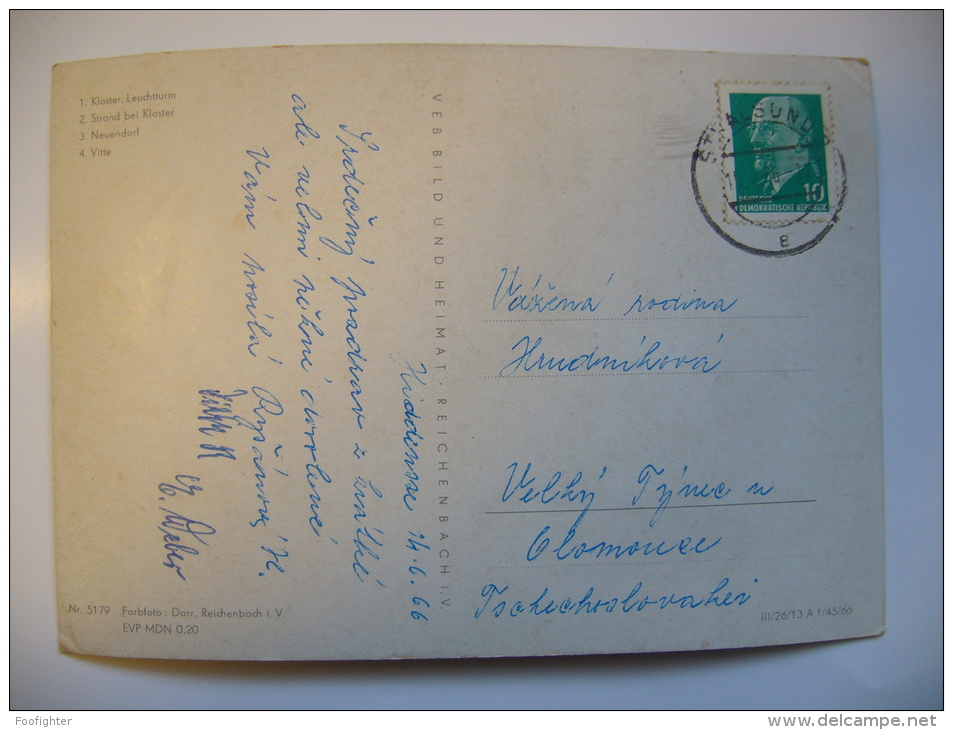 1. Kloster, Leuchtturm
2. Strand bei Kloster
3. Neuendorf
4. Vitte
VEB BILD UND HEIMAT · REICHENBACH I. V.
Hiddensee 14.6.66
Srdečný pozdrav z krátké
ale velmi něžné dovolené
Vám posílá Ryšánová H.
E. Weber
STRALSUND
10
DEUTSCHE
DEMOKRATISCHE REPUBLIK
Vážená rodina
Hrudníková
Velký Týnec u
Olomouce
Tschechoslovakei
Nr. 5179 Farbfoto: Darr, Reichenbach i. V.
EVP MDN 0,20
III/26/13 A 1/45/66
Foofighter
http://www.delcampe.net